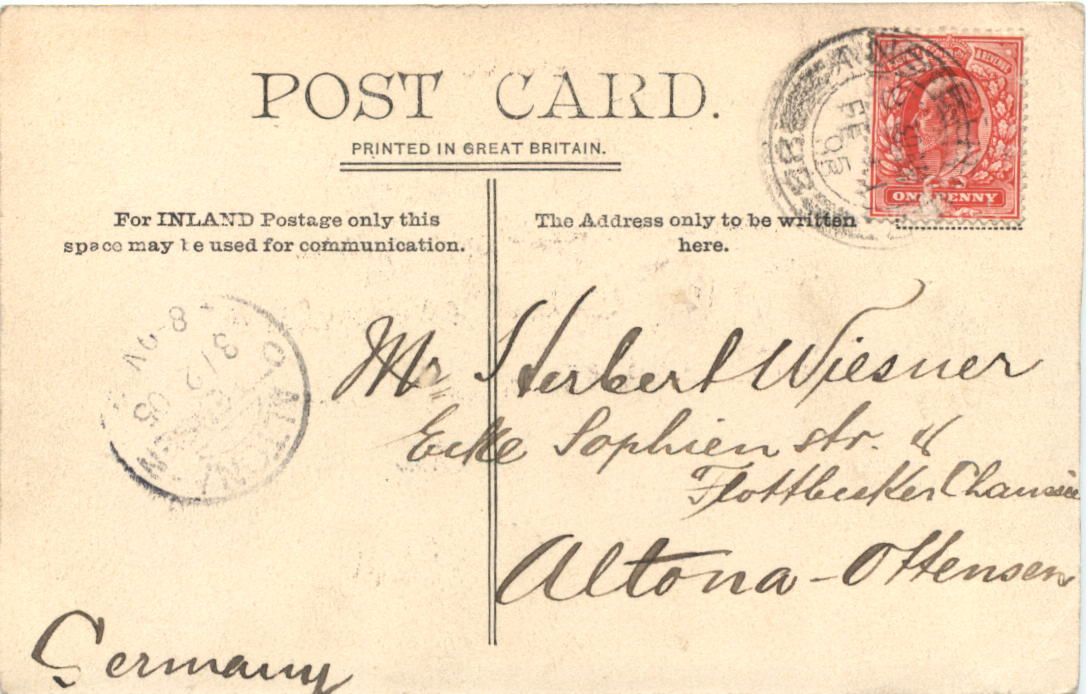 POST CARD.
PRINTED IN GREAT BRITAIN.
For INLAND Postage only this
space may be used for communication.
The Address only to be written
here.
ONE PENNY
FE
05
8-9V
3/2
05
ALTONA
Mr Herbert Wiesner
Ecke Sophien str. &
Flottbecker Chaussee
Altona-Ottensen
Germany